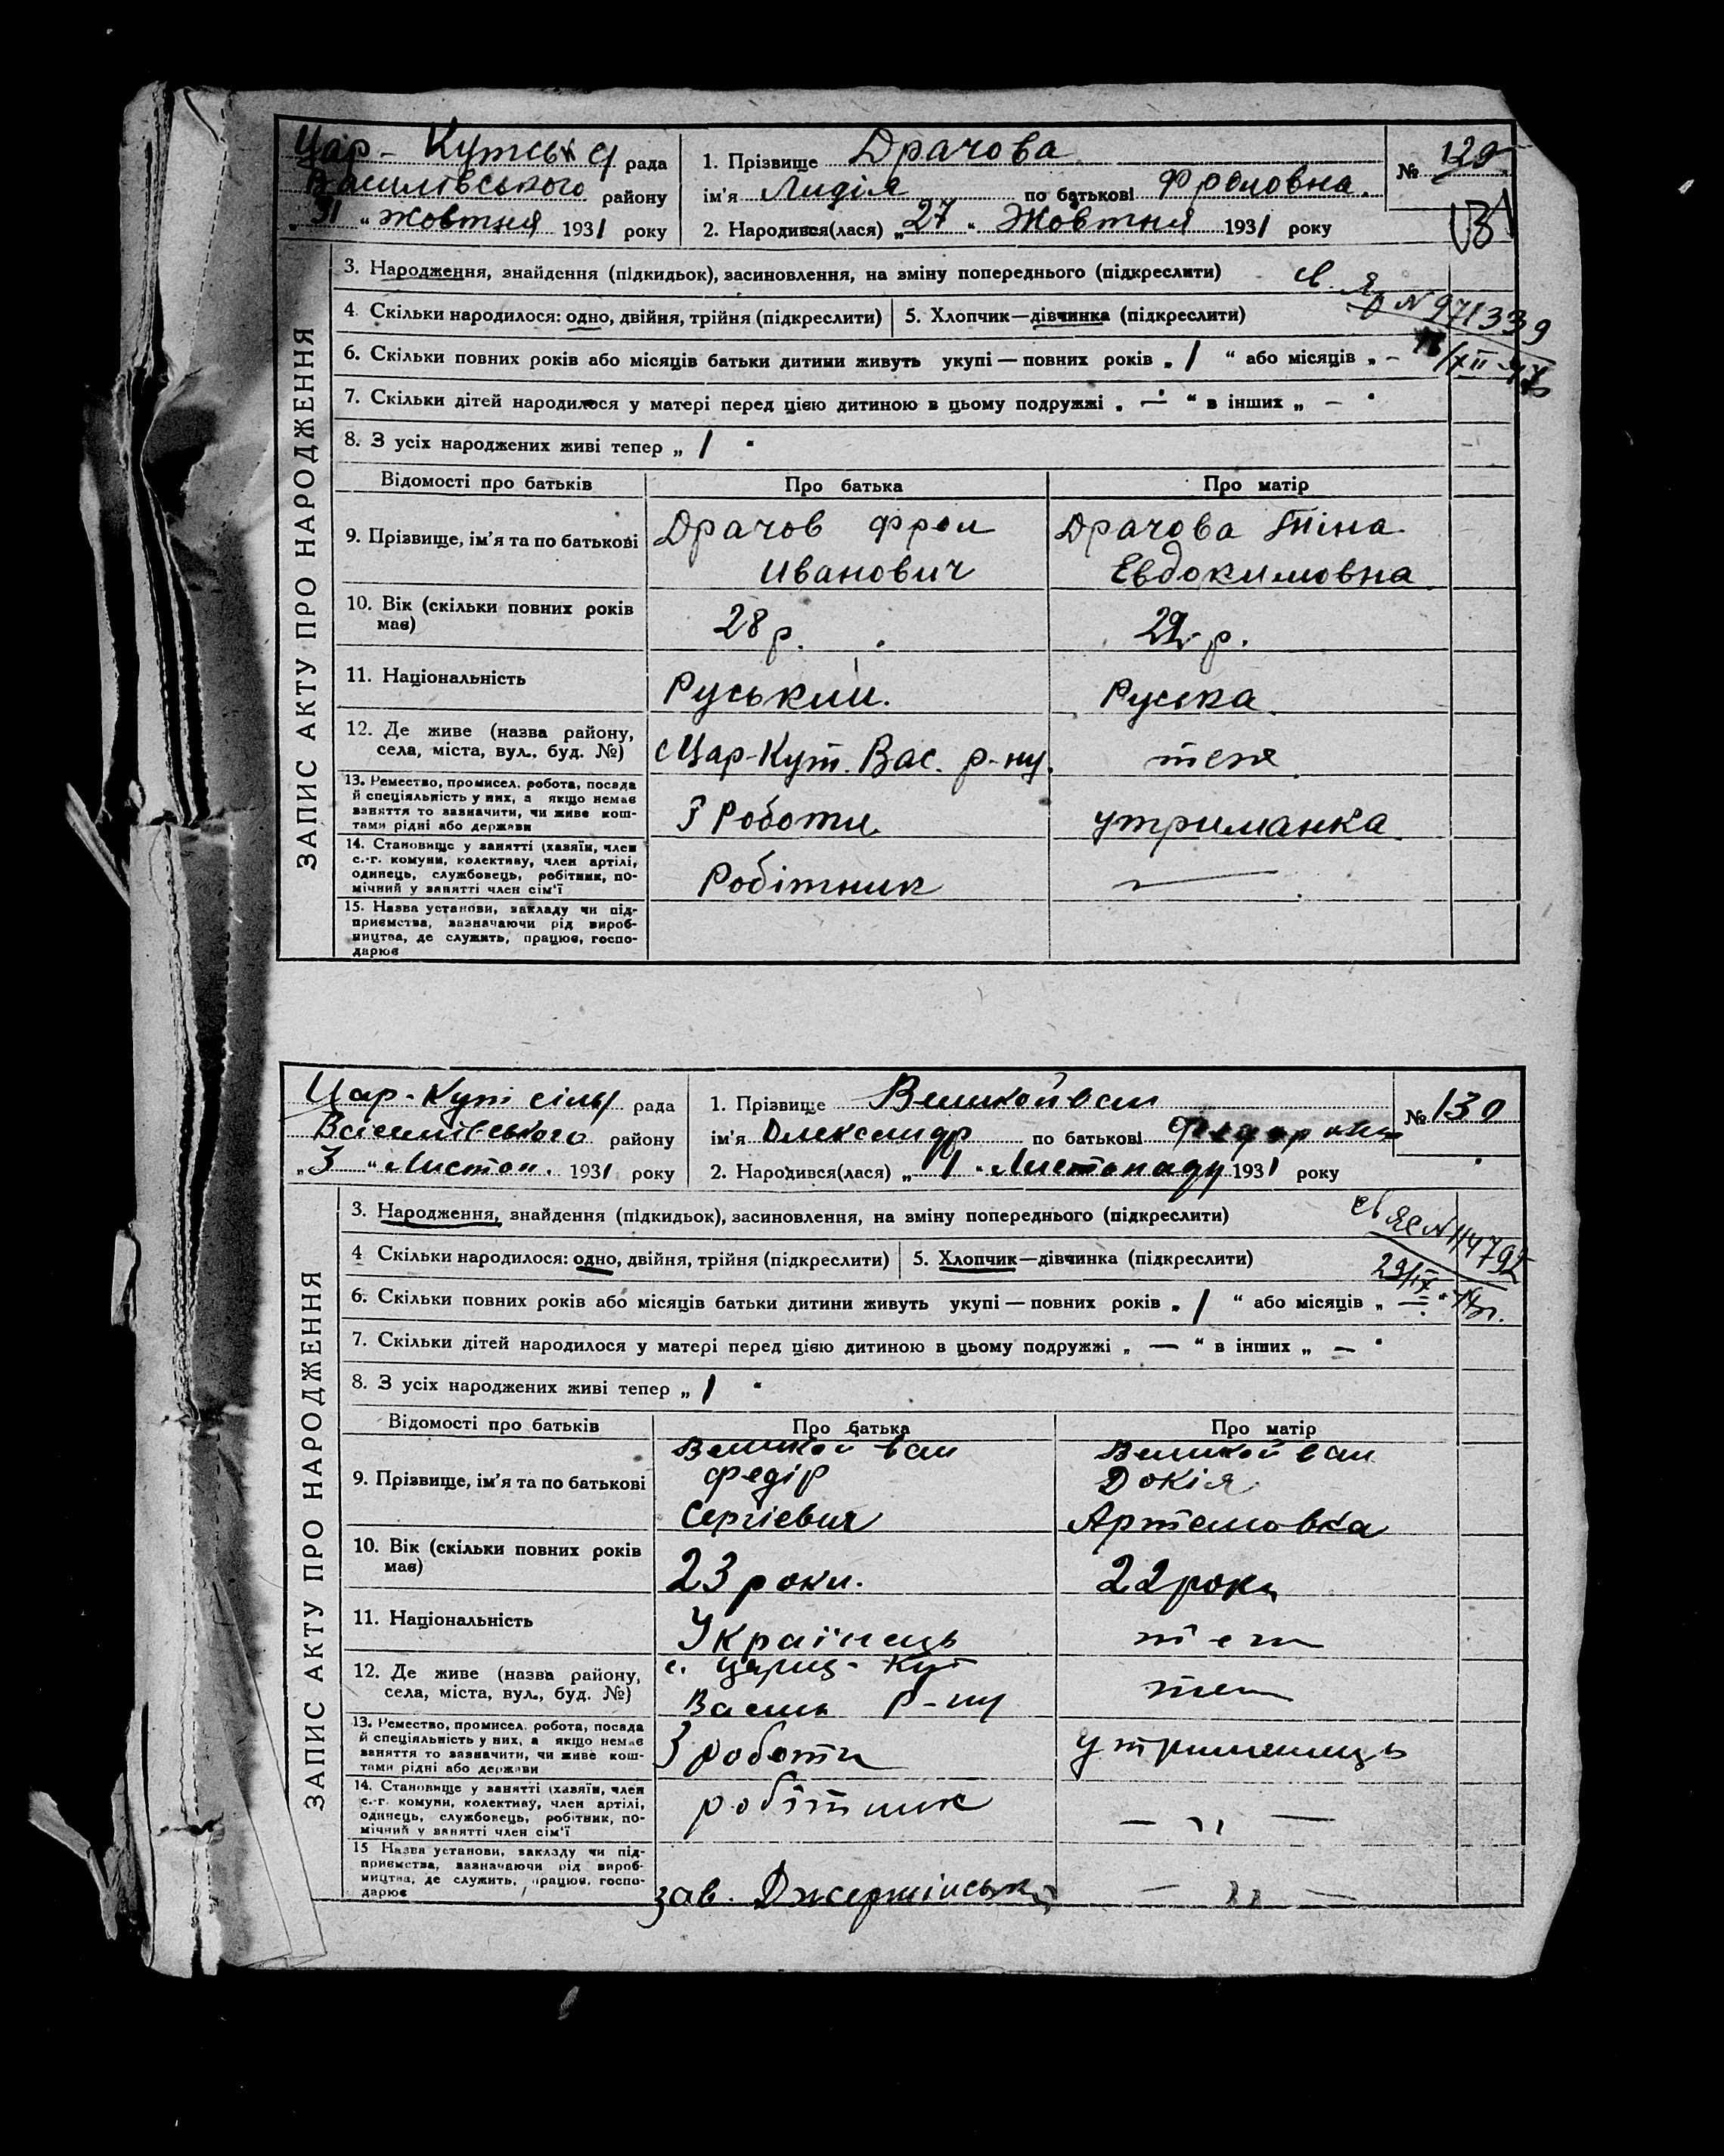 Цар- Кутська рада
Василівського району
„ 31 “ Жовтня 1931 року
1. Прізвище Драчова
ім'я Лидія по батькові Фроловна.
2. Народився(лася) „ 27 “ Жовтня 1931 року
№ 129
ЗАПИС АКТУ ПРО НАРОДЖЕННЯ
3. Народження, знайдення (підкидьок), засиновлення, на зміну попереднього (підкреслити)
4 Скільки народилося: одно, двійня, трійня (підкреслити)
5. Хлопчик—дівчинка (підкреслити)
N 971339
6. Скільки повних років або місяців батьки дитини живуть укупі — повних років „ 1 “ або місяців „ –
7. Скільки дітей народилося у матері перед цією дитиною в цьому подружжі „ — “ в інших „ — “
8. З усіх народжених живі тепер „ 1 “
Відомості про батьків Про батька Про матір
9. Прізвище, ім'я та по батькові
Драчов Фрол
Иванович
Драчова Тіна
Евдокимовна
10. Вік (скільки повних років
має)
28 р.
29 р.
11. Національність
Руський.
Руська
12. Де живе (назва району,
села, міста, вул., буд. №)
с Цар-Кут. Вас. р-ну.
теж
13. Ремество, промисел, робота, посада
й спеціяльність у них, а якщо немає
заняття то зазначити, чи живе кош-
тами рідні або держави
З Роботи
утриманка
14. Становище у занятті (хазяїн, член
с.-г. комуни, колективу, член артілі,
одинець, службовець, робітник, по-
мічний у занятті член сім'ї
Робітник
—
15. Назва установи, закладу чи під-
приємства, вазначаючи рід вироб-
ництва, де служить, працює, госпо-
дарює
Цар-Кут сіль рада
Василівського району
„ 3 “ Листоп. 1931 року
1. Прізвище Великойван
ім'я Олександр по батькові
2. Народився(лася) „ 1 “ Листопаду 1931 року
№ 130
ЗАПИС АКТУ ПРО НАРОДЖЕННЯ
3. Народження, знайдення (підкидьок), засиновлення, на зміну попереднього (підкреслити)
4 Скільки народилося: одно, двійня, трійня (підкреслити)
5. Хлопчик—дівчинка (підкреслити)
6. Скільки повних років або місяців батьки дитини живуть укупі — повних років „ 1 “ або місяців „ —
7. Скільки дітей народилося у матері перед цією дитиною в цьому подружжі „ — “ в інших „ — “
8. З усіх народжених живі тепер „ 1 “
Відомості про батьків Про батька Про матір
9. Прізвище, ім'я та по батькові
Великойван
Федір
Сергієвич
Великойван
Докія
Артемовка
10. Вік (скільки повних років
має)
23 роки.
22 роки
11. Національність
Українець
теж
12. Де живе (назва району,
села, міста, вул., буд. №)
с. Цариц- Кут
Васил р-ну
теж
13. Ремество, промисел, робота, посада
й спеціяльність у них, а якщо немає
заняття то зазначити, чи живе кош-
тами рідні або держави
З роботи
утриманець
14. Становище у занятті (хазяїн, член
с.-г. комуни, колективу, член артілі,
одинець, службовець, робітник, по-
мічний у занятті член сім'ї
робітник
— „ —
15 Назва установи, закладу чи під-
приємства, вазначаючи рід вироб-
ництва, де служить, працює, госпо-
дарює
зав. Джержінська
— „ —